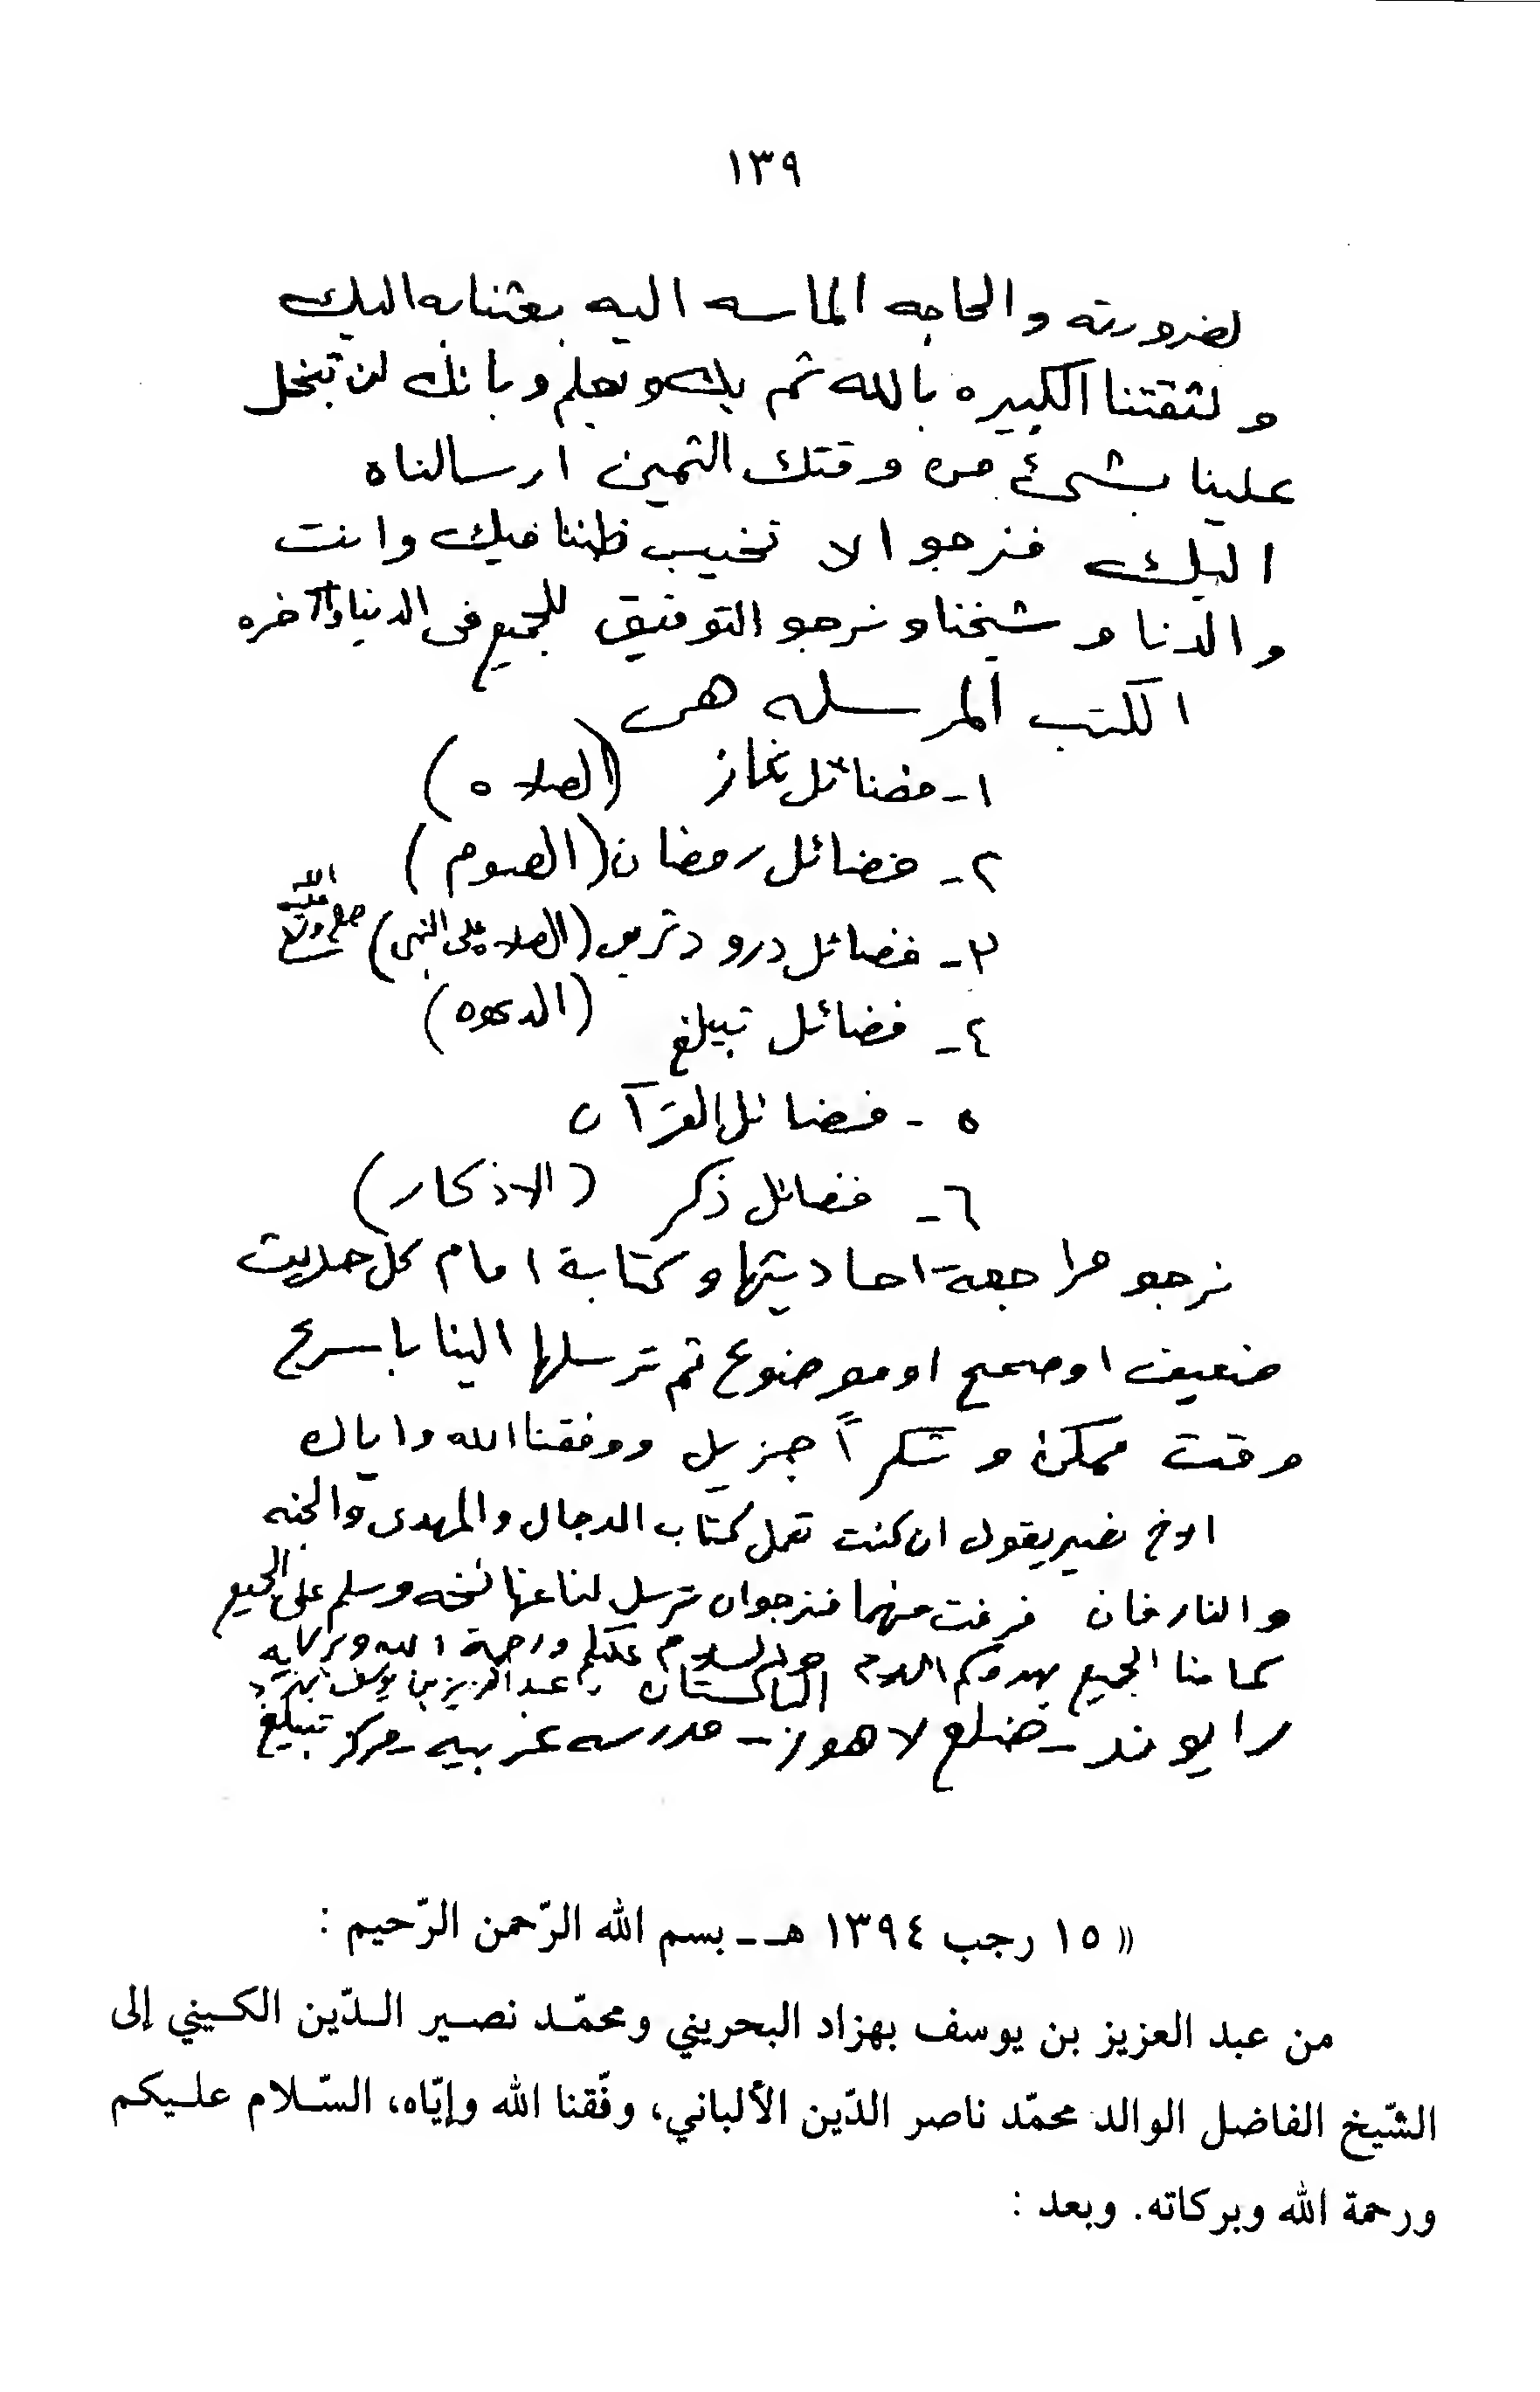 ١٣٩
لضرورته والحاجه الماسه اليه بعثنا به اليك
ولثقتنا الكبيره بالله ثم بك ونعلم وبانك لن تبخل
علينا بشئ من وقتك الثمين ارسالناه
اليك فنرجو الا تخيب ظننا فيك وانت
والدنا وشيخنا ونرجو التوفيق للجميع فى الدنيا والآخره
الكتب المرسله هى
١- فضائل نماز (الصلاه)
٢- فضائل رمضان (الصوم)
٣- فضائل درود شريف (الصلاه على النبى) صلى الله عليه وسلم
٤- فضائل تبيلغ (الدعوه)
٥- فضائل القرآن
٦- فضائل ذكر (الاذكار)
نرجو مراجعة احاديثها وكتابة امام كل حديث
ضعيف او صحيح او موضوع ثم ترسلها الينا باسرع
وقت ممكن وشكراً جزيل ووفقنا الله واياك
الاخ نصير يقول ان كنت تعمل كتاب الدجال والمهدى والجنه
والنار فان فرغت منهما فنرجو ان ترسل لنا عنها نسخه وسلم على الجميع
كما منا الجميع يهدوكم السلام والسلام عليكم ورحمة الله وبركاته
الباكستان عبدالعزيز بن يوسف بهزاد
رايوند - ضلع لاهور - مدرسه عربيه - مركز تبيلغ
« ١٥ رجب ١٣٩٤ هـ ـ بسم الله الرّحمن الرّحيم :
من عبد العزيز بن يوسف بهزاد البحريني ومحمّد نصير الدّين الكيني إلى
الشّيخ الفاضل الوالد محمّد ناصر الدّين الألباني، وفّقنا الله وإيّاه، السّلام عليكم
ورحمة الله وبركاته. وبعد :